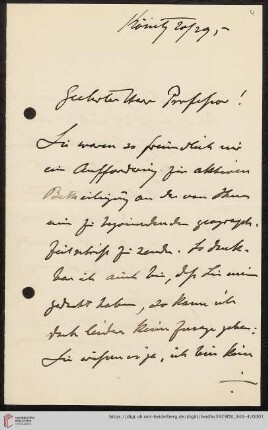 4
Geehrter Herr Professor!
Sie waren so freundlich mir
ein Aufforderung zur aktiven
Betheiligung an der von Ihnen
neu zu begründenden geograph.
Zeitschrift zu senden. So dank-
bar ich auch bin, daß Sie mein
gedacht haben, so kann ich
doch leider keine Zusage geben:
Sie wissen ja, ich bin kein
UNIVERSITÄTS-
BIBLIOTHEK
HEIDELBERG